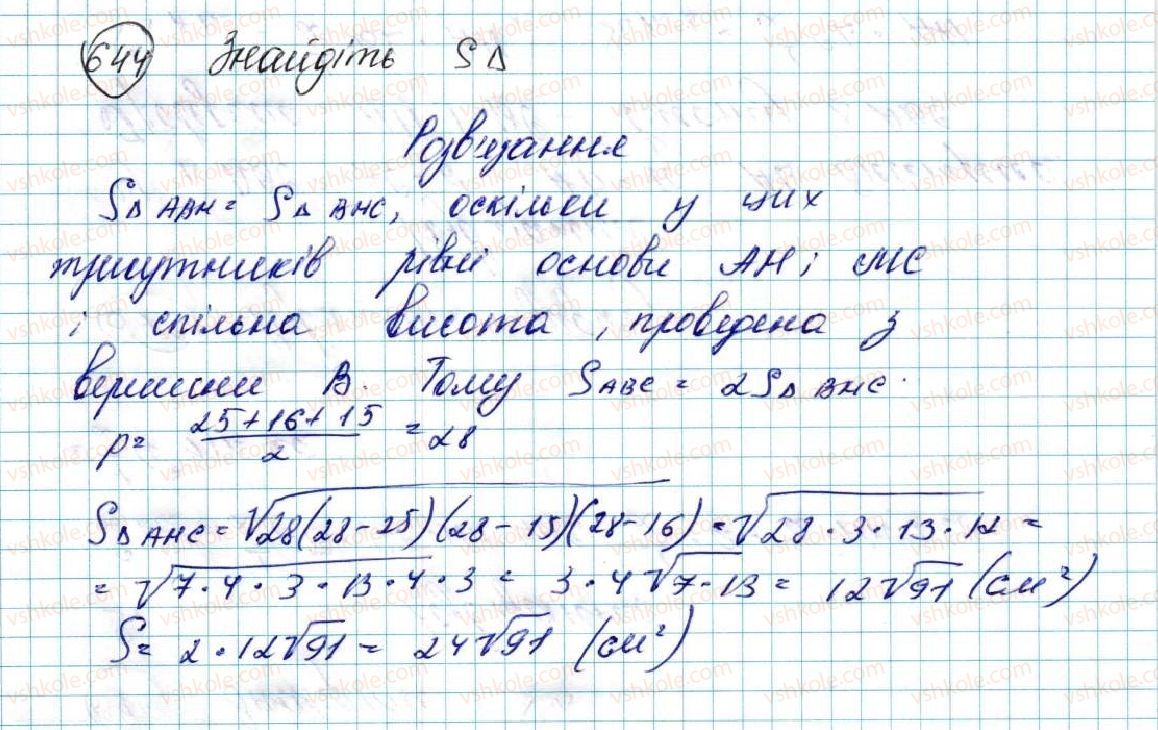 644 Знайдіть S Δ
Розв'язання
SΔ ABH = SΔ BHC, оскільки у цих
трикутників рівні основи AH і MC
і спільна висота, проведена з
вершини B. Тому S ABC = 2SΔ BHC.
p = (25+16+15)/2 = 28
SΔ AHC = √28(28-25)(28-15)(28-16) = √28·3·13·12 =
= √7·4·3·13·4·3 = 3·4√7·13 = 12√91 (см²)
S = 2·12√91 = 24√91 (см²)